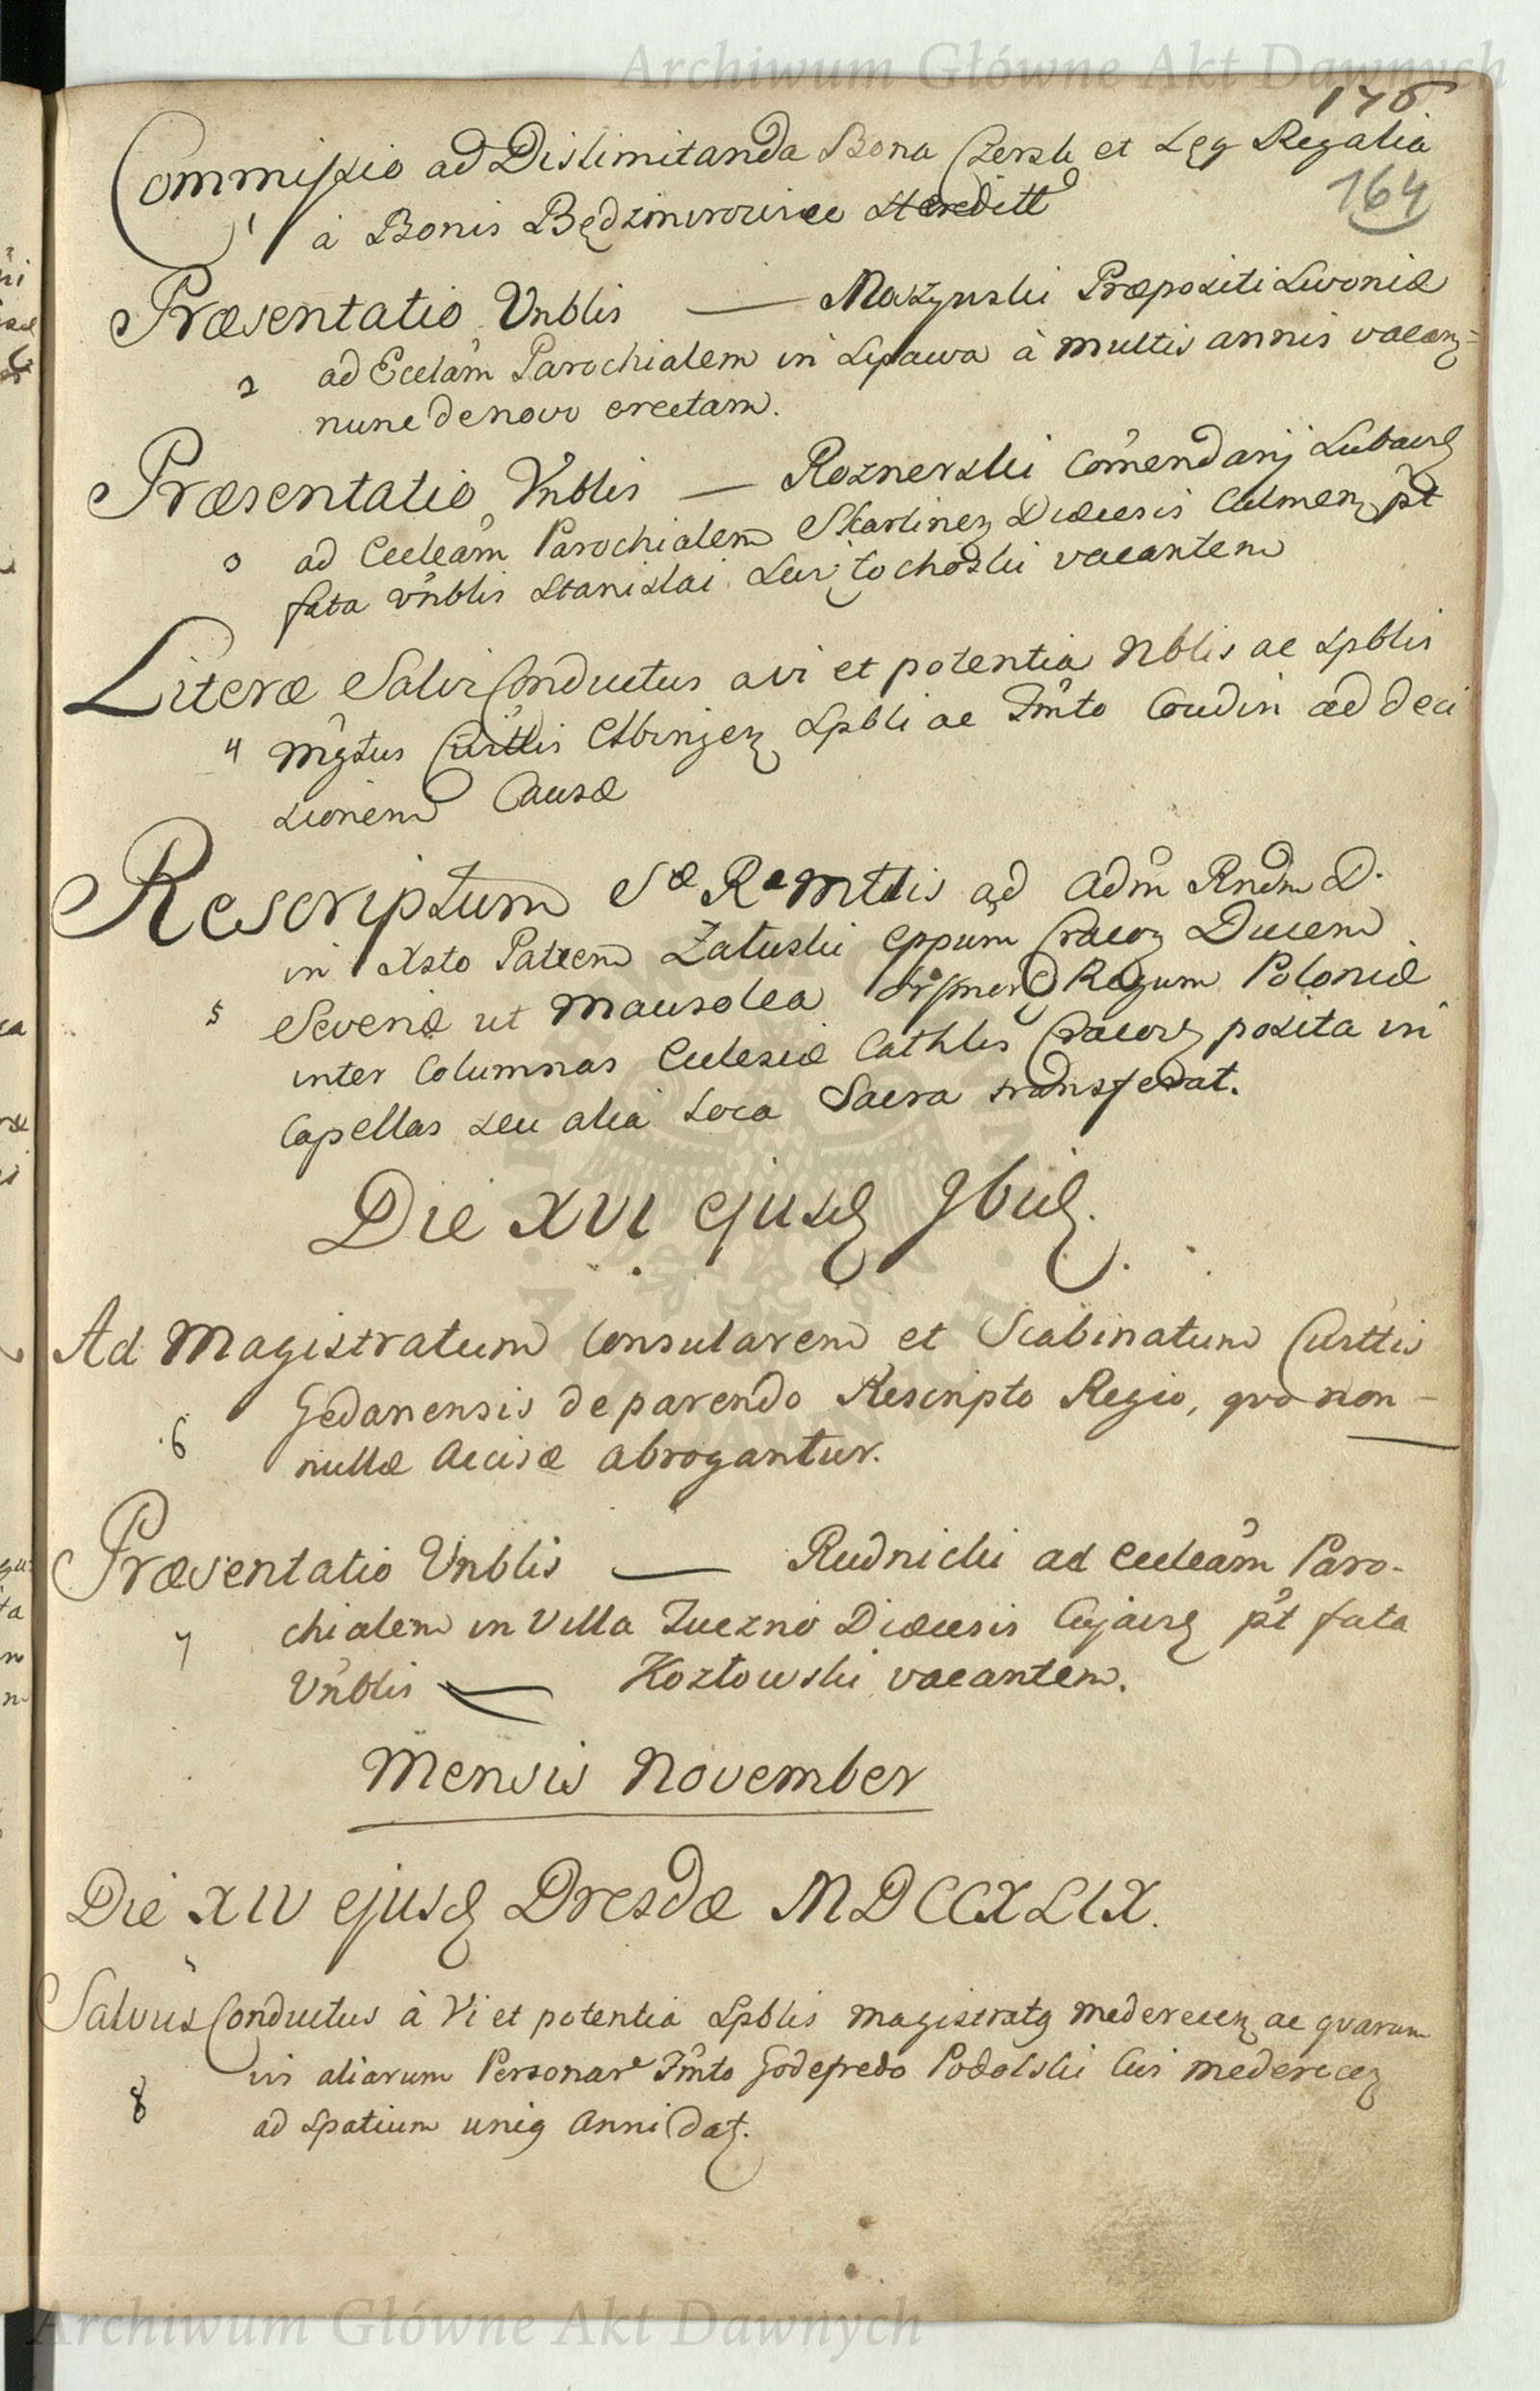 Archiwum Główne Akt Dawnych
176
Commissio ad Dislimitanda Bona Czersk et Łęg Regalia
164
1 à Bonis Będzimirowice Heredittˢ
Præsentatio Vnblis — Mażynski Præpositi Livoniæ
2 ad Ecclãm Parochialem in Lipawa à multis annis vacanz=
nunc denovo erectam.
Præsentatio Vnblis — Roznerski Comendarij Lubavz
3 ad Eccleãm Parochialem Skarlinenz Diæcesis Culmenz pt
fata Vnblis Stanislai Świętochoski vacantem
Literæ Salvi Conductus a vi et potentia Nblis ac Spblis
4 Mgstus Civittis Elbingenz Spbli ac Fmto Coudin ad deci
sionem Causæ
Rescriptum Sæ RaMttis ad Adm Rndm D.
in Xsto Patrem Załuski Eppum Cracovz Ducem
5 Severiæ ut Mausolea Regum Poloniæ
inter Columnas Eclesiæ Cathlis Cracovz posita in
Capellas seu alia Loca Sacra transferat.
Die XVI ejusdz 9briz.
Ad Magistratum Consularem et Scabinatum Civittis
Gedanensis de parendo Rescripto Regio, quo non-
6 nullæ Accisæ abrogantur.
Præsentatio Vnblis — Rudnicki ad Eccleãm Paro-
7 chialem in Villa Tuczno Diæcesis Cujavz pt fata
Vnblis — Kozłowski vacantem.
Mensis November
Die XIV ejusdz Dresdæ MDCCXLIX.
Salvus Conductus à Vi et potentia Spblis Magistratq Medereczenz ac quarum
vis aliarum Personarᵉ Fmto Godefredo Podolski Civi Mederecez
8 ad Spatium uniq Anni Datz.
Archiwum Główne Akt Dawnych